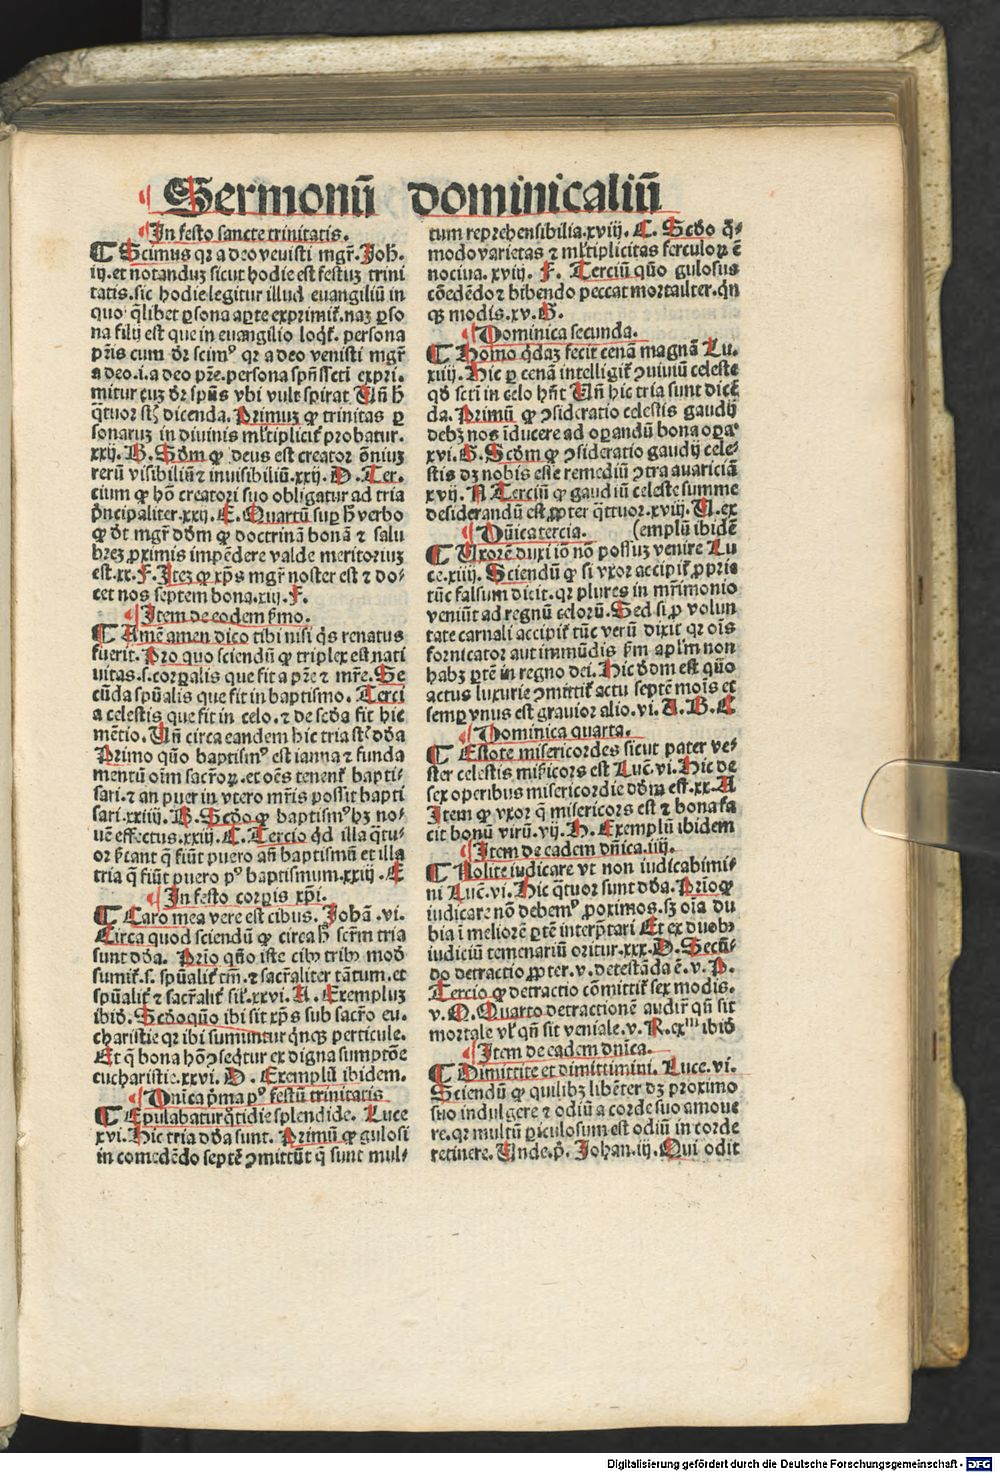 Sermonū dominicaliū
In festo sancte trinitatis.
Scimus qꝛ a deo venisti mgr̄. Joh̄.
iij. et notanduꝫ sicut hodie est festuꝫ trini
tatis. sic hodie legitur illud euangiliū in
quo q̄libet ꝑsona aꝑte exprimit̄. naꝫ ꝑso
na filij est que in euangilio loqt̄. persona
pr̄is cum dr̄ scimꝰ qꝛ a deo venisti mgr̄
a deo .i. a deo pr̄e. persona spūs scti expri-
mitur cuꝫ dr̄ spūs vbi vult spirat Un̄ h̄
q̄tuor st̄ dicenda. Primuꝫ ꝙ trinitas ꝑ
sonaruꝫ in diuinis ml̄tiplicit̄ probatur.
xxij. B. Scd̄m ꝙ deus est creator om̄niuꝫ
rerū visibiliū ⁊ inuisibiliū. xxij. D. Ter-
cium ꝙ hō creatori suo obligatur ad tria
p̄ncipaliter. xxij. E. Quartū sup̄ h̄ verbo
ꝙ dt̄ mgr̄ dd̄m ꝙ doctrinā bonā ⁊ salu
breꝫ ꝓximis impēdere valde meritoriuꝫ
est. xx. F. Iteꝫ ꝙ xp̄s mgr̄ noster est ⁊ do-
cet nos septem bona. xiij. F.
Item de eodem p̄mo.
Amē amen dico tibi nisi q̄s renatus
fuerit. Pro quo sciendū ꝙ triplex est nati
uitas. s. corꝑalis que fit a pr̄e ⁊ mr̄e. Se
cūda spūalis que fit in baptismo. Terci
a celestis que fit in celo. ⁊ de scd̄a fit hic
mētio. Un̄ circa eandem hic tria st̄ dd̄a
Primo quō baptismꝰ est ianua ⁊ funda
mentū oīm sacr̄oꝝ. et oēs tenent̄ bapti-
sari. ⁊ an puer in vtero mr̄is possit bapti
sari. xxiiij. B. Scd̄o ꝙ baptismꝰ hꝫ no-
uē effectus. xxiij. C. Tercio qd̄ illa q̄tu-
or p̄tant q̄ fiūt puero an̄ baptismū et illa
tria q̄ fiūt puero pꝰ baptismum. xxiij. E
In festo corꝑis xp̄i.
Caro mea vere est cibus. Johā. vi.
Circa quod sciendū ꝙ circa h̄ scr̄m tria
sunt dd̄a. Prīo qūo iste cibꝰ tribꝰ mod̄
sumit̄. s. spūalit̄ tm̄. ⁊ sacr̄aliter tātum. et
spūalit̄ ⁊ sacr̄alit̄ sil̄. xxvi. A. Exempluꝫ
ibid̄. Scd̄o quō ibi sit xp̄s sub sacr̄o eu-
charistie qꝛ ibi sumuntur q̄nqꝫ perticule.
Et q̄ bona hōꝫ seq̄tur ex digna sumptōe
eucharistie. xxvi. D. Exemplū ibidem.
Dnica p̄ma pꝰ festū trinitatis
Epulabatur q̄tidie splendide. Luce
xvi. Hic tria dd̄a sunt. Primū ꝙ gulosi
in comedēdo septē ꝯmittūt q̄ sunt mul-
tum reprehensibilia. xviij. C. Scd̄o q̄-
modo varietas ⁊ ml̄tiplicitas ferculoꝝ ē
nociua. xviij. F. Terciū quō gulosus
cōedēdo ⁊ bibendo peccat mortaliter. qn̄
qꝫ modis. xv. G.
Dominica secunda.
Homo qd̄aꝫ fecit cenā magnā Lu.
xiiij. Hic ꝑ cenā intelligit̄ ꝯuiuiū celeste
qd̄ sctī in celo hn̄t Un̄ hic tria sunt dicē
da. Primū ꝙ ꝯsideratio celestis gaudij
debꝫ nos īducere ad oꝑandū bona oꝑa
xvi. G. Scd̄m ꝙ ꝯsideratio gaudij cele-
stis dꝫ nobis esse remediū ꝯtra auariciā
xvij. A Terciū ꝙ gaudiū celeste summe
desiderandū est ꝓpter q̄ttuor. xviij. A. ex
Dn̄ica tercia. (emplū ibidē
Uxorē duxi iō nō possuꝫ venire Lu
ce. xiiij. Sciendū ꝙ si vxor accipit̄ ꝓprie
tūc falsum dicit. qꝛ plures in mr̄imonio
veniūt ad regnū celorū. Sed si ꝓ volun
tate carnali accipit̄ tūc verū dixit qꝛ oīs
fornicator aut immūdis s̄m apl̄m non
habꝫ ꝑtē in regno dei. Hic dd̄m est quō
actus luxurie ꝯmittit̄ actu septē moīs et
semꝑ vnus est grauior alio. vi. A. B. C
Dominica quarta.
Estote misericordes sicut pater ve-
ster celestis mīicors est Luc̄. vi. Hic de
sex operibus misericordie dd̄m est. xx. A
Item ꝙ vxor q̄ misericors est ⁊ bona fa
cit bonū virū. vij. H. Exemplū ibidem
Item de eadem dn̄ica. iiij.
Nolite iudicare vt non iudicabimi-
ni Luc̄. vi. Hic q̄tuor sunt dd̄a. Prīo ꝙ
iudicare nō debemꝰ ꝓximos. sꝫ oīa du
bia ī meliorē ꝑtē interp̄tari Et ex duobꝰ
iudiciū temerariū oritur. xxx. D. Secū-
do detractio ꝓpter. v. detestāda ē. v. P.
Tercio ꝙ detractio cōmittit̄ sex modis.
v. Q. Quarto detractionē audir̄ qn̄ sit
mortale vl̄ qn̄ sit veniale. v. R. exᵐ ibid̄
Item de eadem dnīca.
Dimittite et dimittimini. Luce. vi.
Sciendū ꝙ quilibꝫ libēter dꝫ proximo
suo indulgere ⁊ odiū a corde suo amoue
re. qꝛ multū ꝑiculosum est odiū in corde
retinere. Unde. p̄. Johan. iij. Qui odit
Digitalisierung gefördert durch die Deutsche Forschungsgemeinschaft - DFG